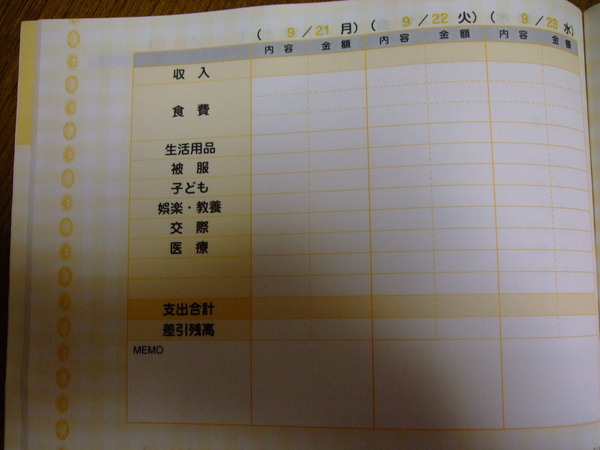 ( 9 / 21 月) ( 9 / 22 火) ( 9 / 23 水)
内 容 金 額 内 容 金 額 内 容 金 額
収 入
食 費
生活用品
被 服
子ども
娯楽・教養
交 際
医 療
支出合計
差引残高
MEMO